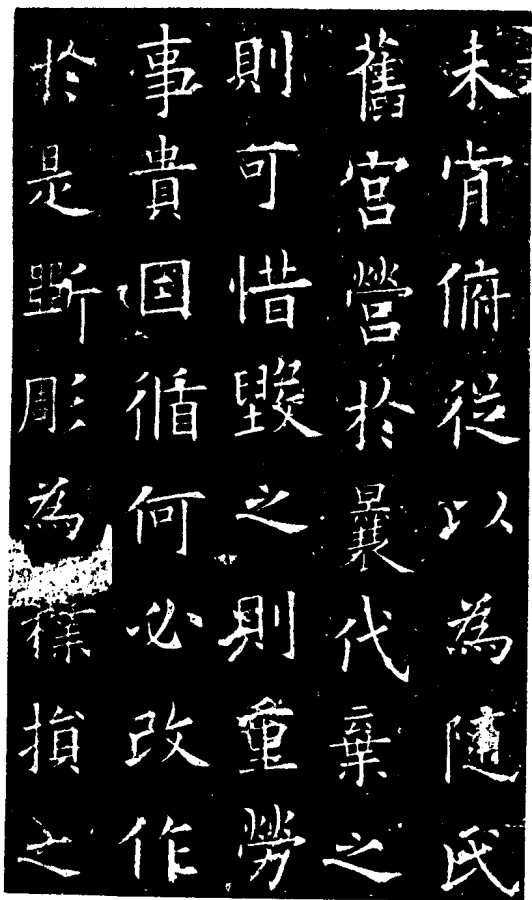 未肯俯從以為隨氏
舊宮營於曩代棄之
則可惜毀之則重勞
事貴因循何必改作
於是斲彫為樸損之